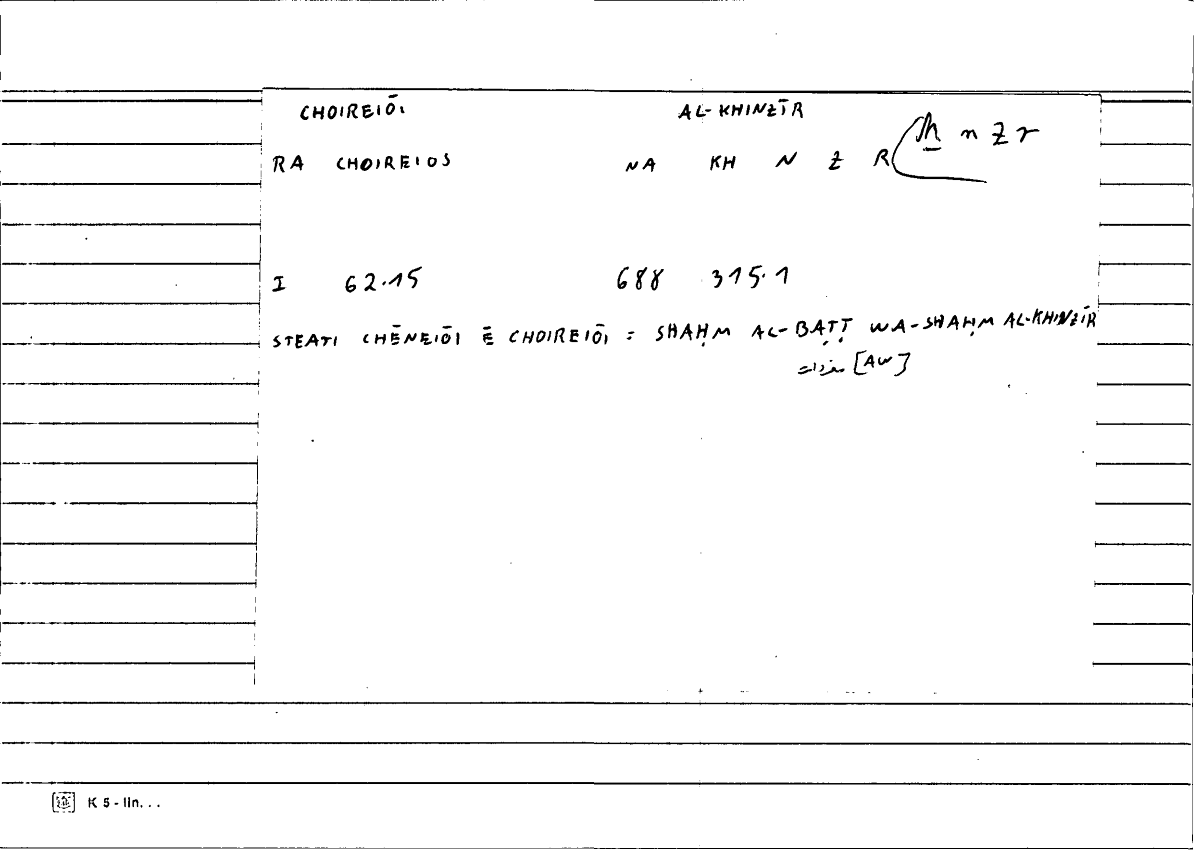 CHOIREIŌI AL-KHINZĪR
RA CHOIREIOS NA KH N Z R ḫ n z r
I 62.15 688 315.1
STEATI CHĒNEIŌI Ē CHOIREIŌI = SHAḤM AL-BAṬṬ WA-SHAḤM AL-KHINZĪR
[AW]
K 5 - lin...